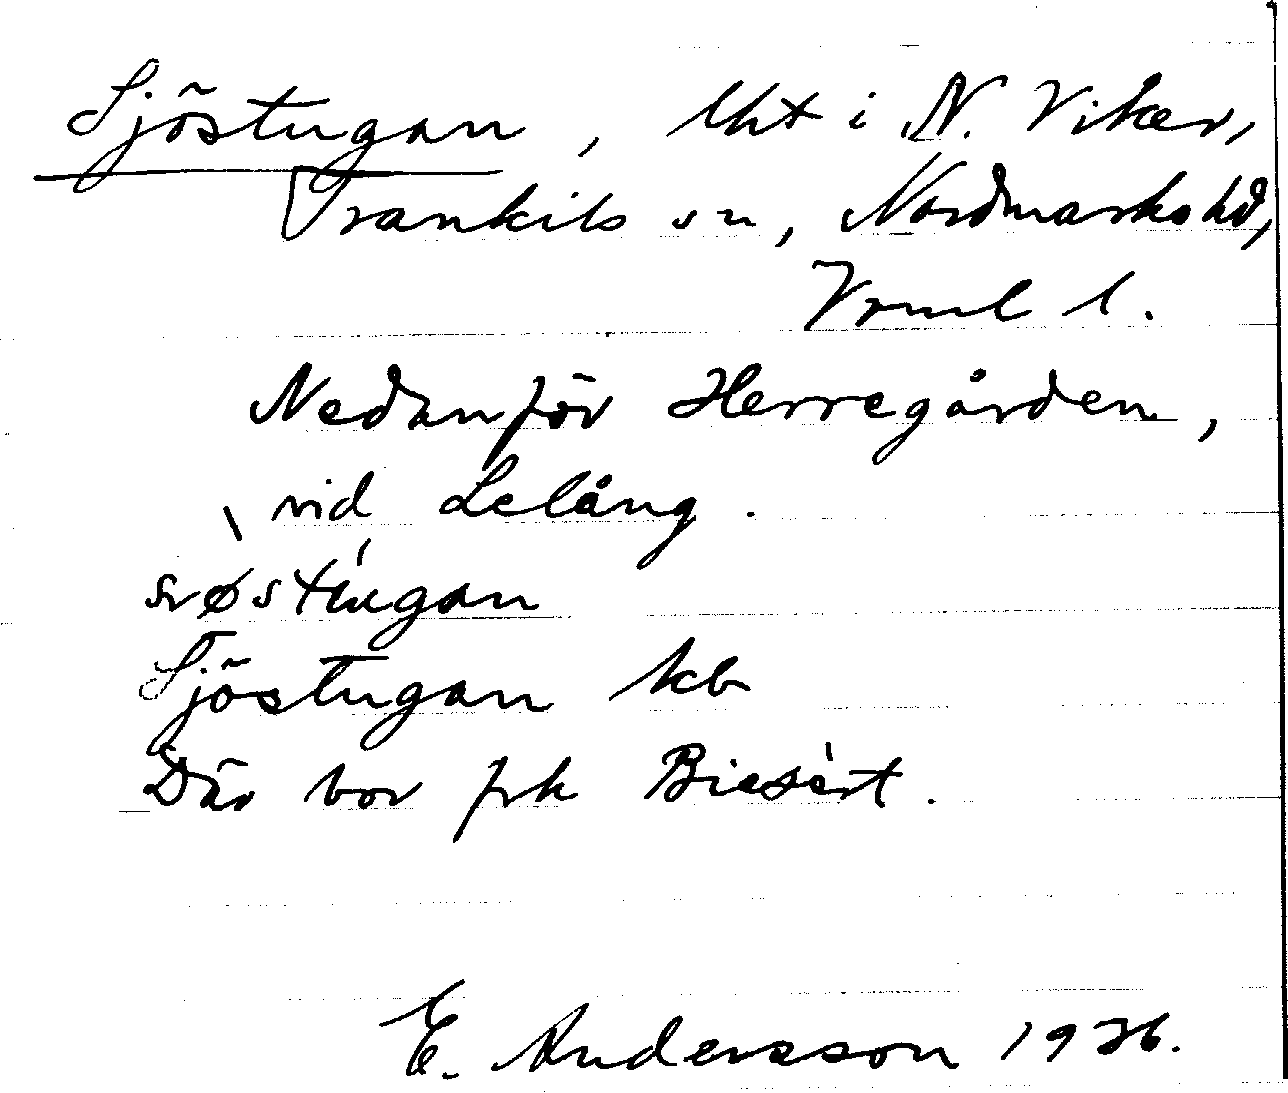 Sjöstugan, lht i N. Viker,
Trankils sn, Nordmarks hd,
Vrml l.
Nedanför Herregården,
vid Lelång.
Sjöstugan kb
Där bor frk Biesèrt.
E. Andersson 1926.